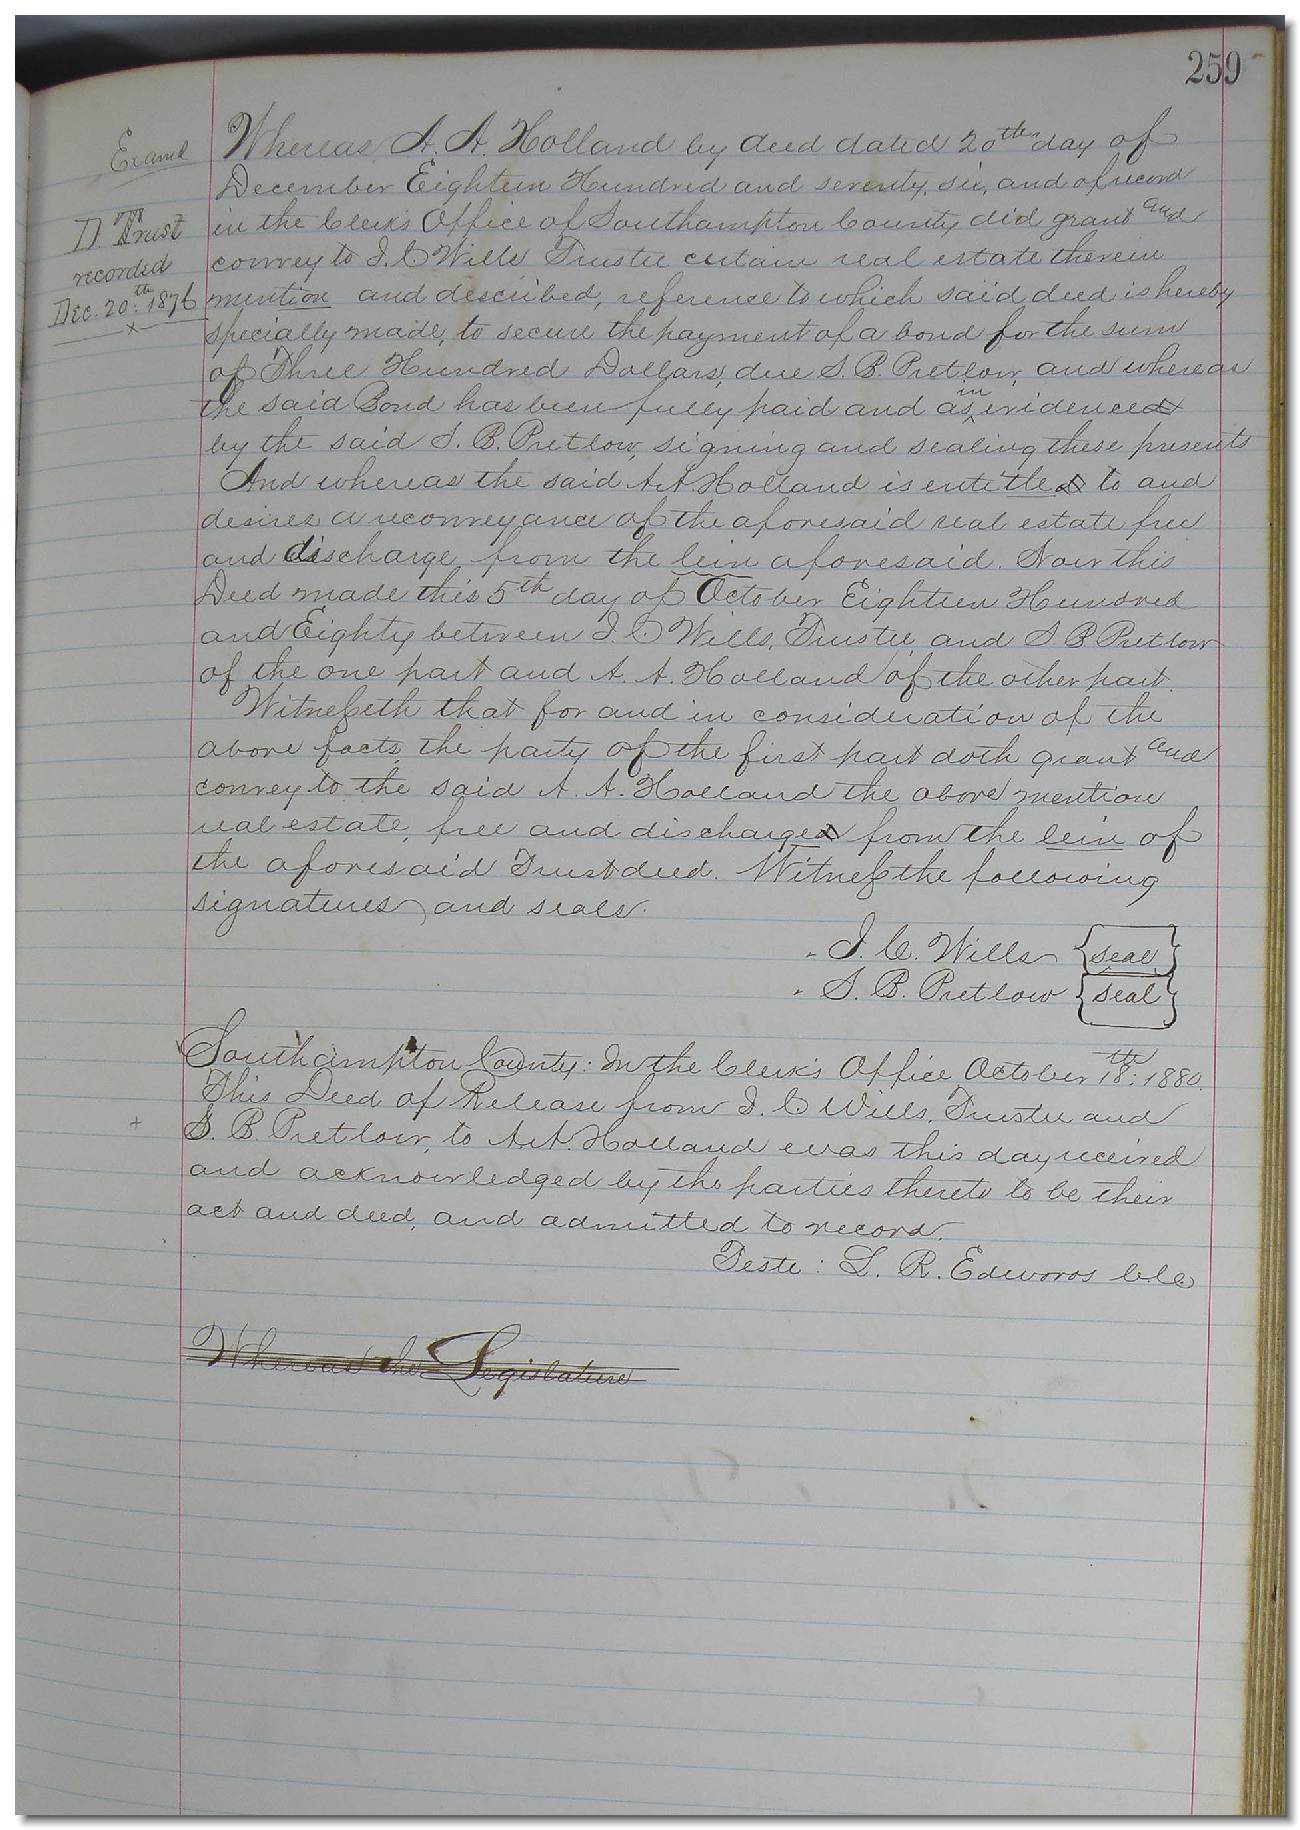 259
Examd
D Trust
recorded
Dec. 20th: 1876
Whereas, A. A. Holland by deed dated 20th day of
December Eighteen Hundred and seventy, six, and of record
in the Clerk's Office of Southampton County, did grant and
convey to J. C Wills Trustee certain real estate therein
mention and described, reference to which said deed is hereby
specially made, to secure the payment of a bond for the sum
of Three Hundred Dollars, due S. B. Pretlow, and whereas
the said Bond has been fully paid and as in evidenced
by the said S. B. Pretlow, signing and sealing these presents
And whereas the said A. A Holland is entitled to and
desires a reconveyance of the aforesaid real estate free
and discharge from the lein aforesaid. Now this
Deed made this 5th day of October Eighteen Hundred
and Eighty between J. C Wills, Trustee, and S. B Pretlow
of the one part and A. A. Holland of the other part.
Witnesseth that for and in consideration of the
above facts, the party of the first part doth grant and
convey to the said A. A. Holland the above mention
real estate, free and discharged from the lein of
the aforesaid Trust deed. Witness the following
signatures and seals.
J. C. Wills {seal}
S. B. Pretlow {seal}
Southampton County: In the Clerk's Office October 18th: 1880.
This Deed of Release from J. C Wills, Trustee and
S. B. Pretlow, to A. A. Holland was this day received
and acknowledged by the parties thereto to be their
act and deed, and admitted to record.
Teste: L. R. Edwards Clk
Whereas the Legislature